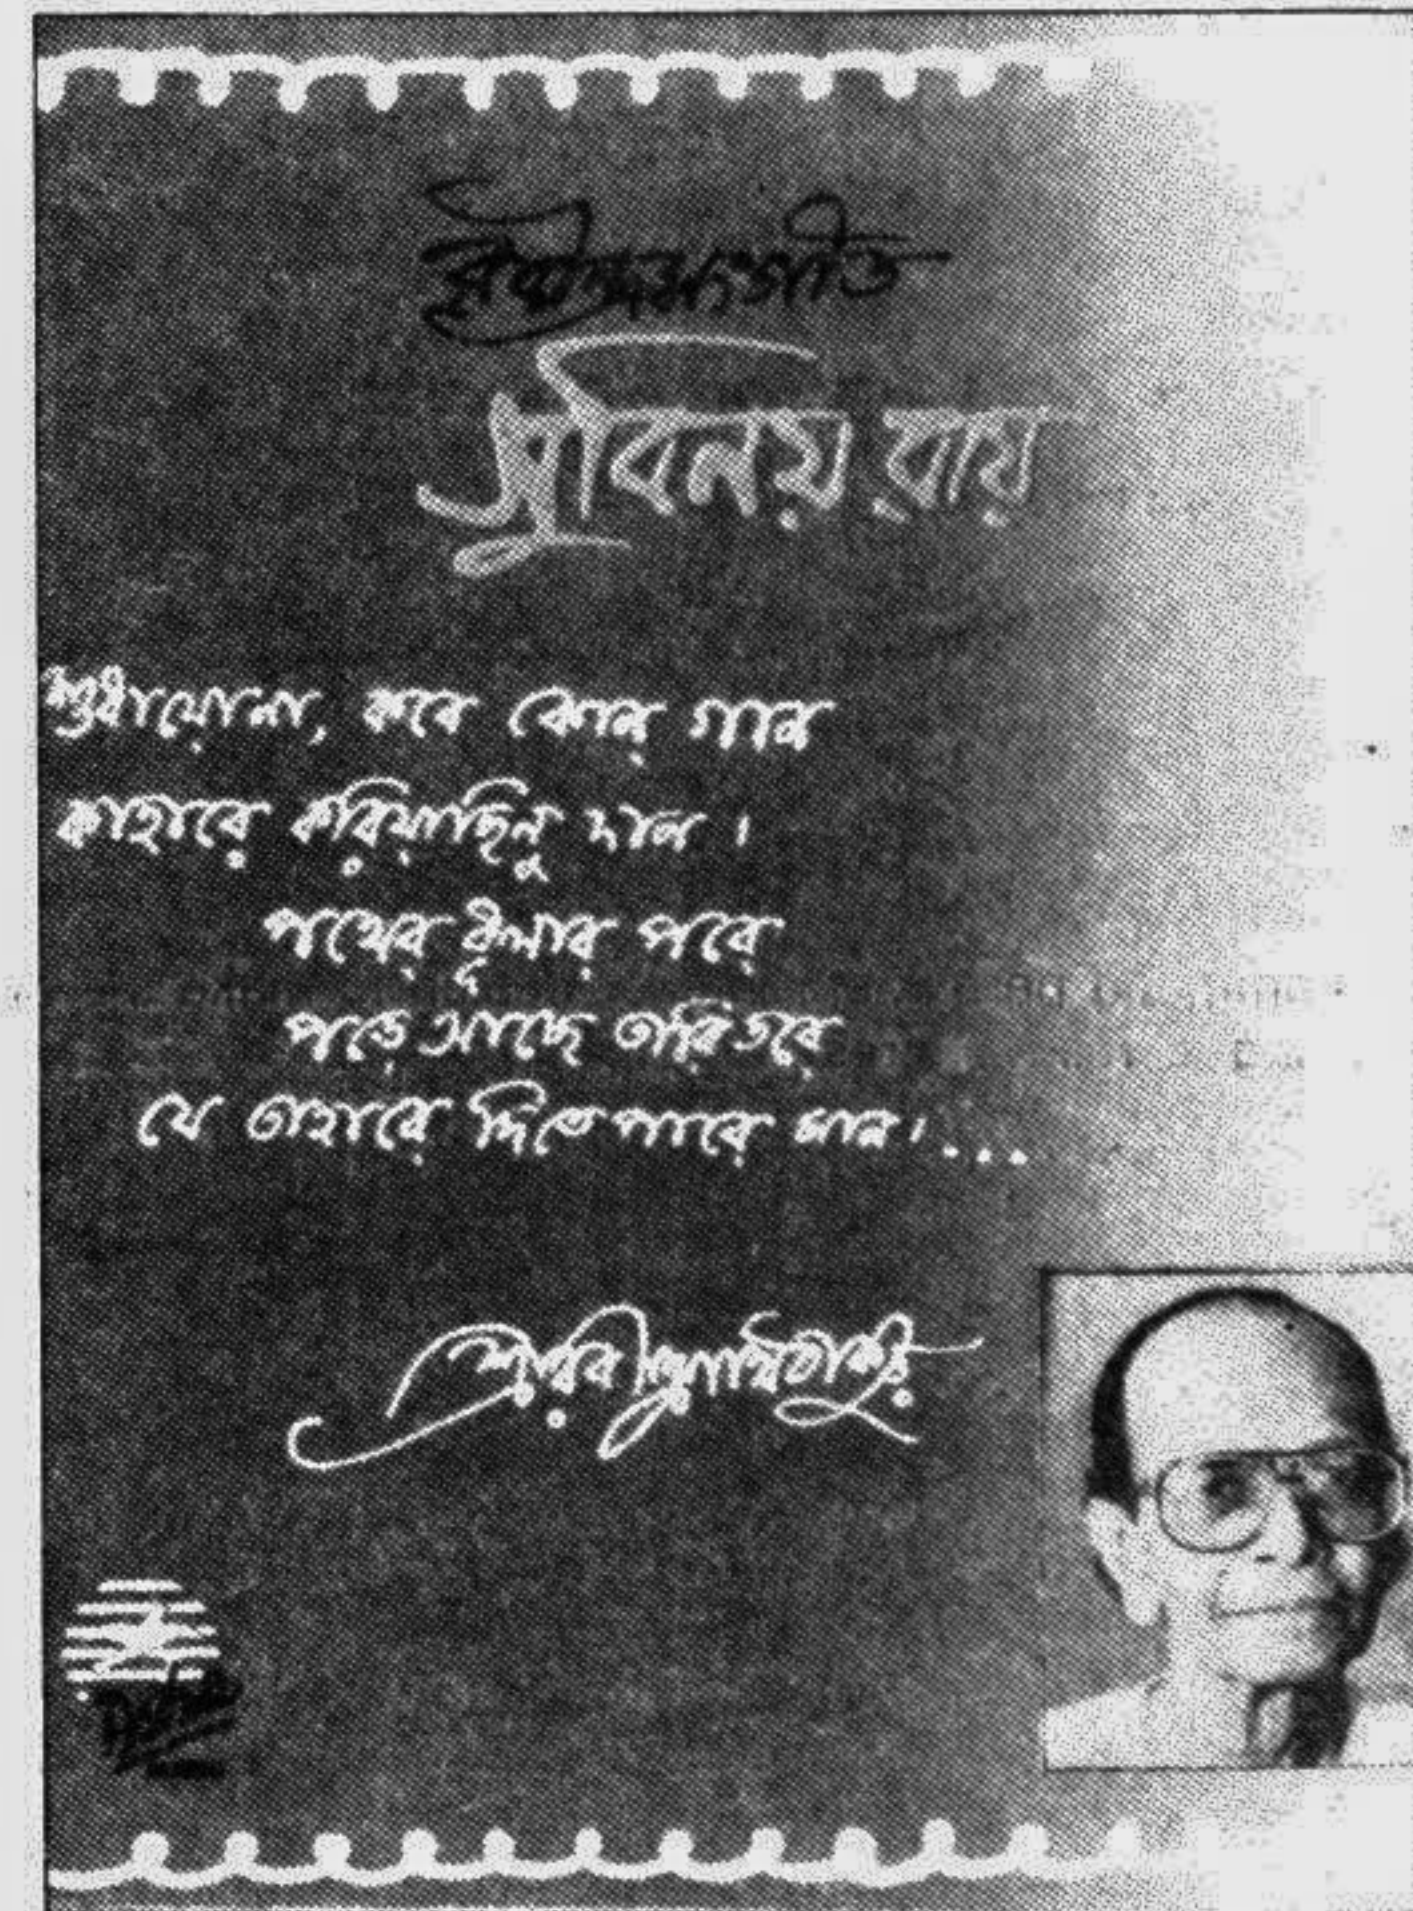 রবীন্দ্রসংগীত
সুবিনয় রায়
শুধায়োনা, কবে কোন্ গান
কাহারে করিয়াছিনু দান।
পথের ধূলার পরে
পড়ে আছে তারি তরে
যে তাহারে দিতে পারে মান।...
শ্রীরবীন্দ্রনাথ ঠাকুর